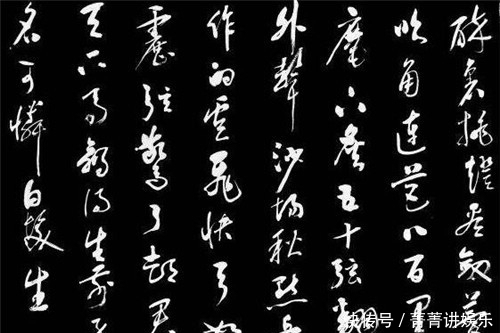 醉裏挑燈看劍
吹角連營八百里
麾下炙五十弦翻
外聲沙場秋點兵
作的盧飛快弓如
靂弦驚了却君
天下事贏得生前
名可憐白髮生
快传号/菁菁讲娱乐